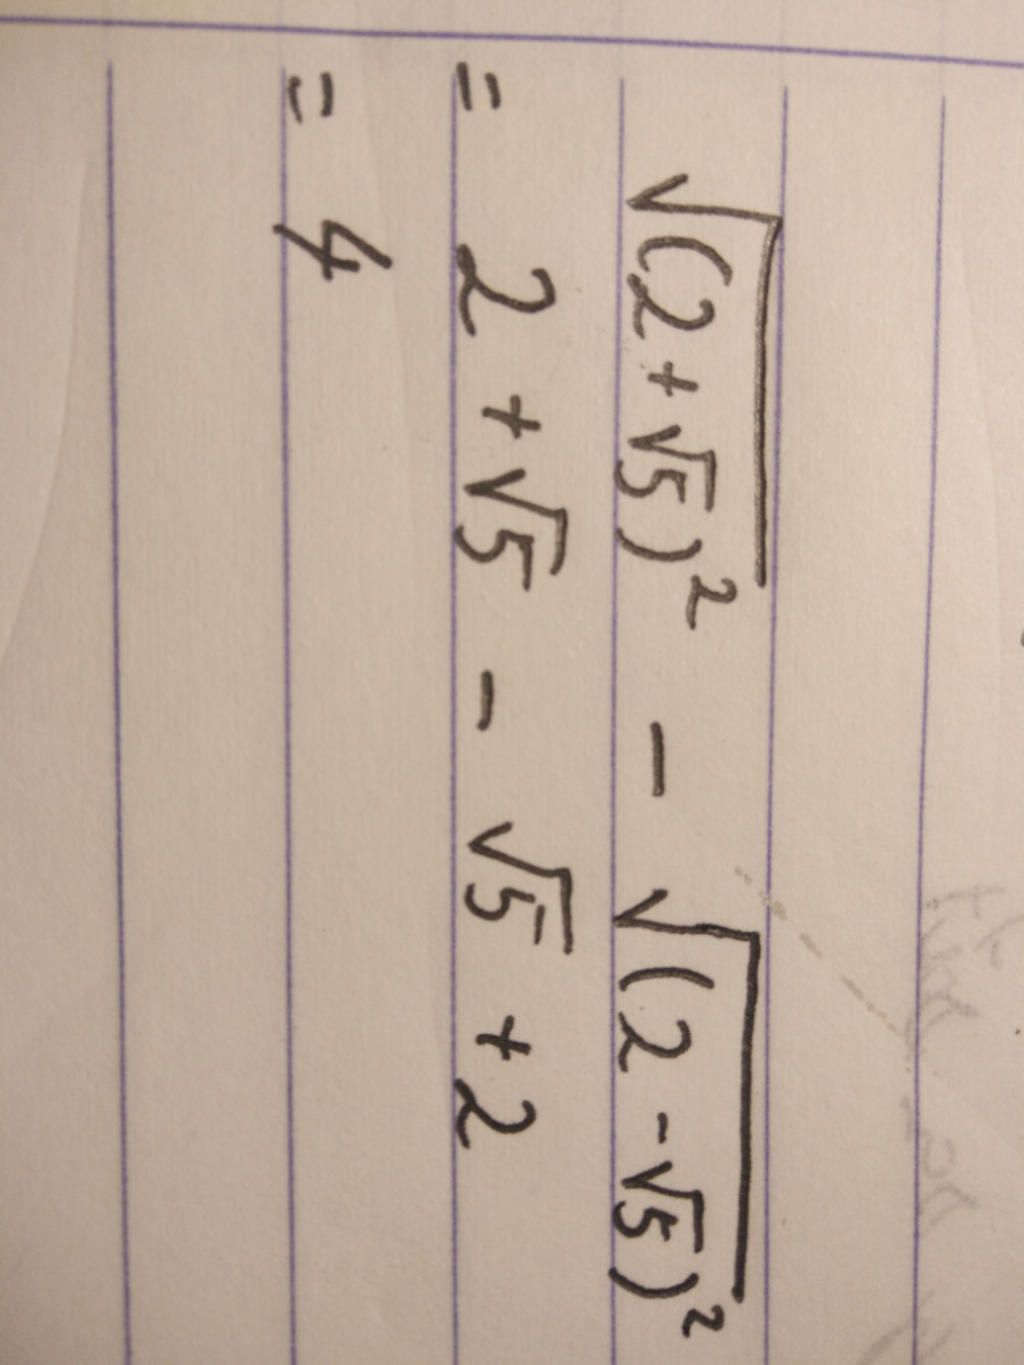 √(2+√5)² - √(2-√5)²
= 2 + √5 - √5 + 2
= 4